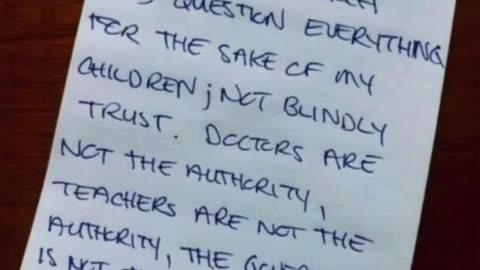 QUESTION EVERYTHING
FOR THE SAKE OF MY
CHILDREN; NOT BLINDLY
TRUST. DOCTORS ARE
NOT THE AUTHORITY,
TEACHERS ARE NOT THE
AUTHORITY, THE
IS NOT